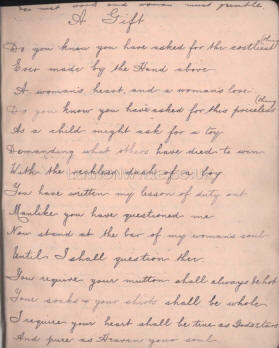 man must grumble
A Gift
Do you know you have asked for the costliest thing
Ever made by the Hand above
A woman's heart, and a woman's love
Do you know you have asked for this priceless thing
As a child might ask for a toy
Demanding what others have died to win
With the reckless dash of a boy
You have written my lesson of duty out
Manlike you have questioned me
Now stand at the bar of my woman's soul
Until I shall question thee.
You require your mutton shall always be hot
Your socks & your shirts shall be whole
I require your heart shall be true as God's
And pure as Heaven your soul